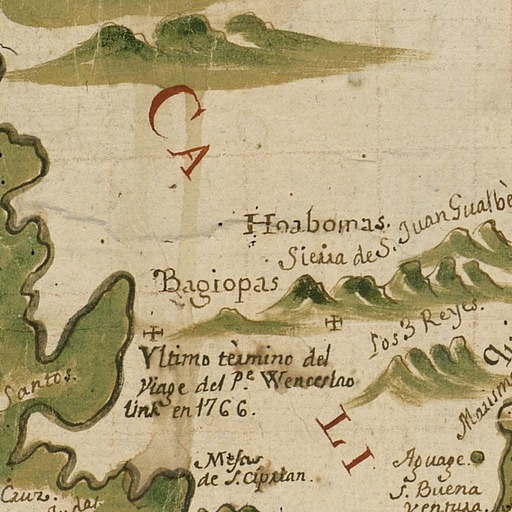 CA
Hoabomas.
Sierra de S. Juan Gualbe
Bagiopas
los 3 Reyes.
Vltimo tèrmino del
Viage del Pe. Wenceslao
link en 1766.
LI
Mtscas
de S. Ciprian.
Aguage.
S. Buena
Ventura.
Santos.
Cruz.